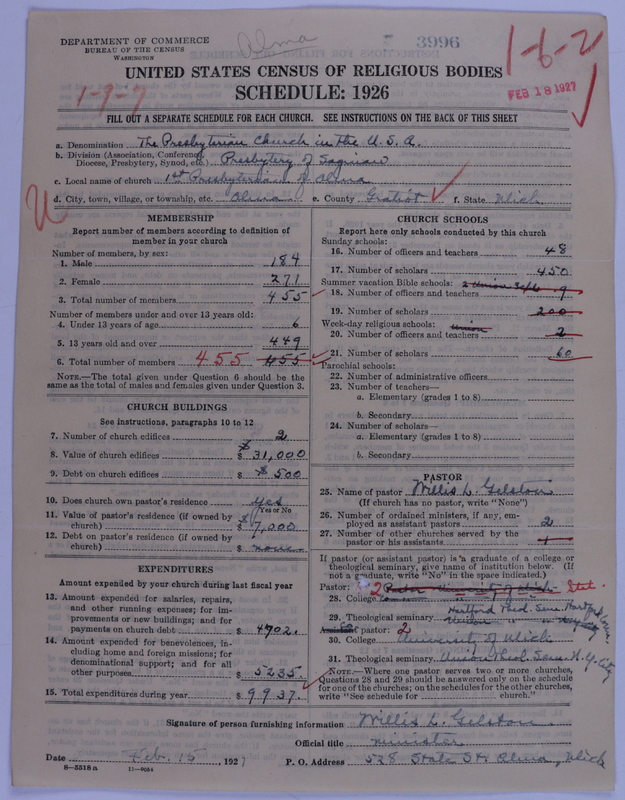 DEPARTMENT OF COMMERCE
BUREAU OF THE CENSUS
WASHINGTON
Alma
3996
1-6-2
1-7-7
FEB 18 1927
UNITED STATES CENSUS OF RELIGIOUS BODIES
SCHEDULE: 1926
FILL OUT A SEPARATE SCHEDULE FOR EACH CHURCH. SEE INSTRUCTIONS ON THE BACK OF THIS SHEET
a. Denomination The Presbyterian Church in the U.S.A.
b. Division (Association, Conference, Diocese, Presbytery, Synod, etc.) Presbytery of Saginaw
c. Local name of church 1st Presbyterian of Alma
d. City, town, village, or township, etc. Alma e. County Gratiot f. State Mich
MEMBERSHIP
Report number of members according to definition of
member in your church
Number of members, by sex:
1. Male 184
2. Female 271
3. Total number of members 455
Number of members under and over 13 years old:
4. Under 13 years of age 6
5. 13 years old and over 449
6. Total number of members 455 455
NOTE.—The total given under Question 6 should be
same as the total of males and females given under Question 3.
CHURCH BUILDINGS
See instructions, paragraphs 10 to 12
7. Number of church edifices 2
8. Value of church edifices $ 31,000
9. Debt on church edifices $ 500
10. Does church own pastor's residence yes
Yes or No
11. Value of pastor's residence (if owned by
church) $ 7,000
12. Debt on pastor's residence (if owned by
church) $ none
EXPENDITURES
Amount expended by your church during last fiscal year
13. Amount expended for salaries, repairs,
and other running expenses; for im-
provements or new buildings; and for
payments on church debt $ 4702
14. Amount expended for benevolences, in-
cluding home and foreign missions; for
denominational support; and for all
other purposes $ 5235
15. Total expenditures during year $ 9937
CHURCH SCHOOLS
Report here only schools conducted by this church
Sunday schools:
16. Number of officers and teachers 48
17. Number of scholars 450
Summer vacation Bible schools: 2 Union
18. Number of officers and teachers 9
19. Number of scholars 200
Week-day religious schools: Union
20. Number of officers and teachers 2
21. Number of scholars 60
Parochial schools:
22. Number of administrative officers
23. Number of teachers—
a. Elementary (grades 1 to 8)
b. Secondary
24. Number of scholars—
a. Elementary (grades 1 to 8)
b. Secondary
PASTOR
25. Name of pastor Willis L. Gelston
(If church has no pastor, write "None")
26. Number of ordained ministers, if any, em-
ployed as assistant pastors 2
27. Number of other churches served by the
pastor or his assistants 1
If pastor (or assistant pastor) is a graduate of a college or
theological seminary, give name of institution below. (If
not a graduate, write "No" in the space indicated.)
Pastor: 2 University of Mich
28. College
Hartford Theol. Sem. Hartford Conn.
29. Theological seminary
of pastor: 2
30. College University of Mich
31. Theological seminary Union Theol. Sem. N.Y. City
NOTE.—Where one pastor serves two or more churches,
Questions 28 and 29 should be answered only on the schedule
for one of the churches; on the schedules for the other churches,
write "See schedule for church."
Signature of person furnishing information Willis L. Gelston
Official title minister
Date Feb. 15, 1927 P. O. Address 528 State St. Alma, Mich
8—5518 a 11—9054